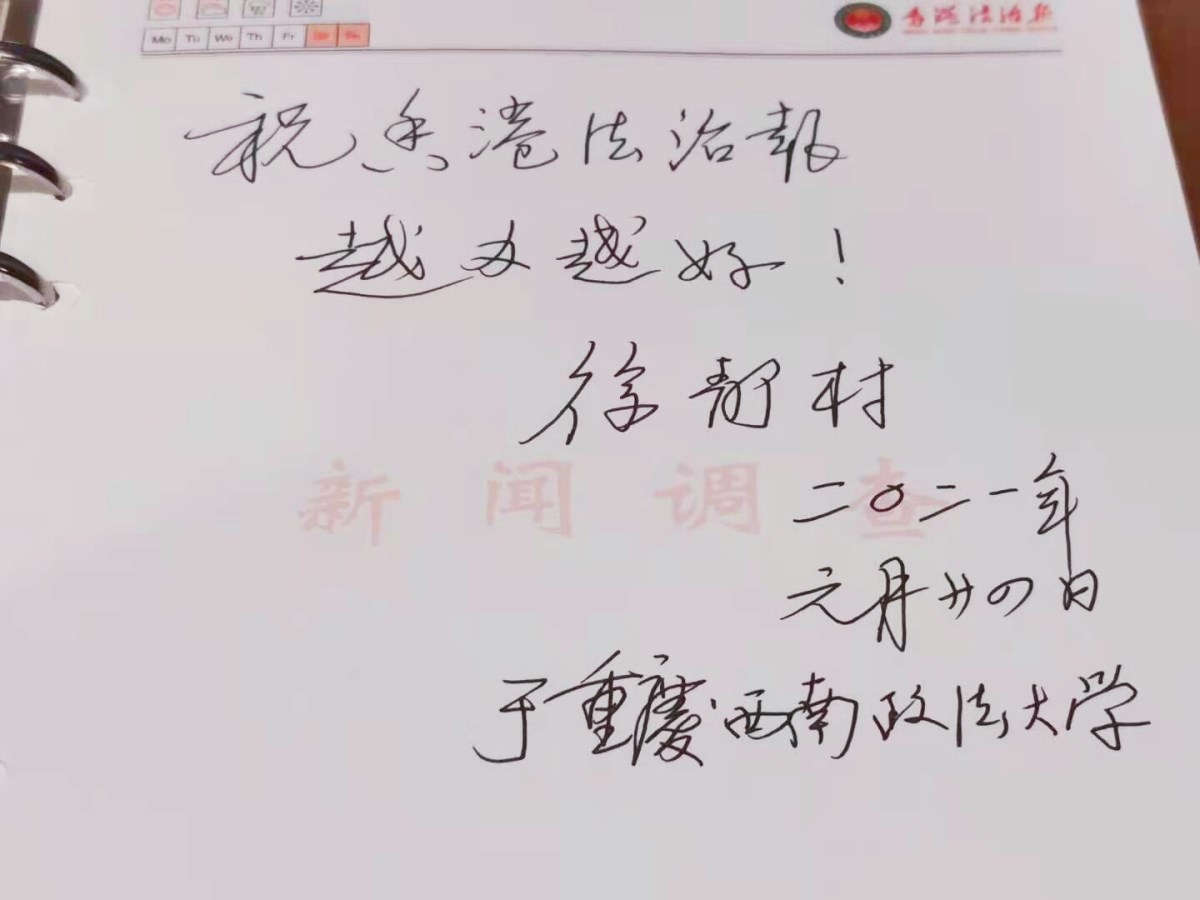 Mo Tu We Th Fr Sa Su
香港法治报
祝香港法治報
越办越好！
徐静村
新闻调查
二〇二一年
元月廿四日
于重慶西南政法大学